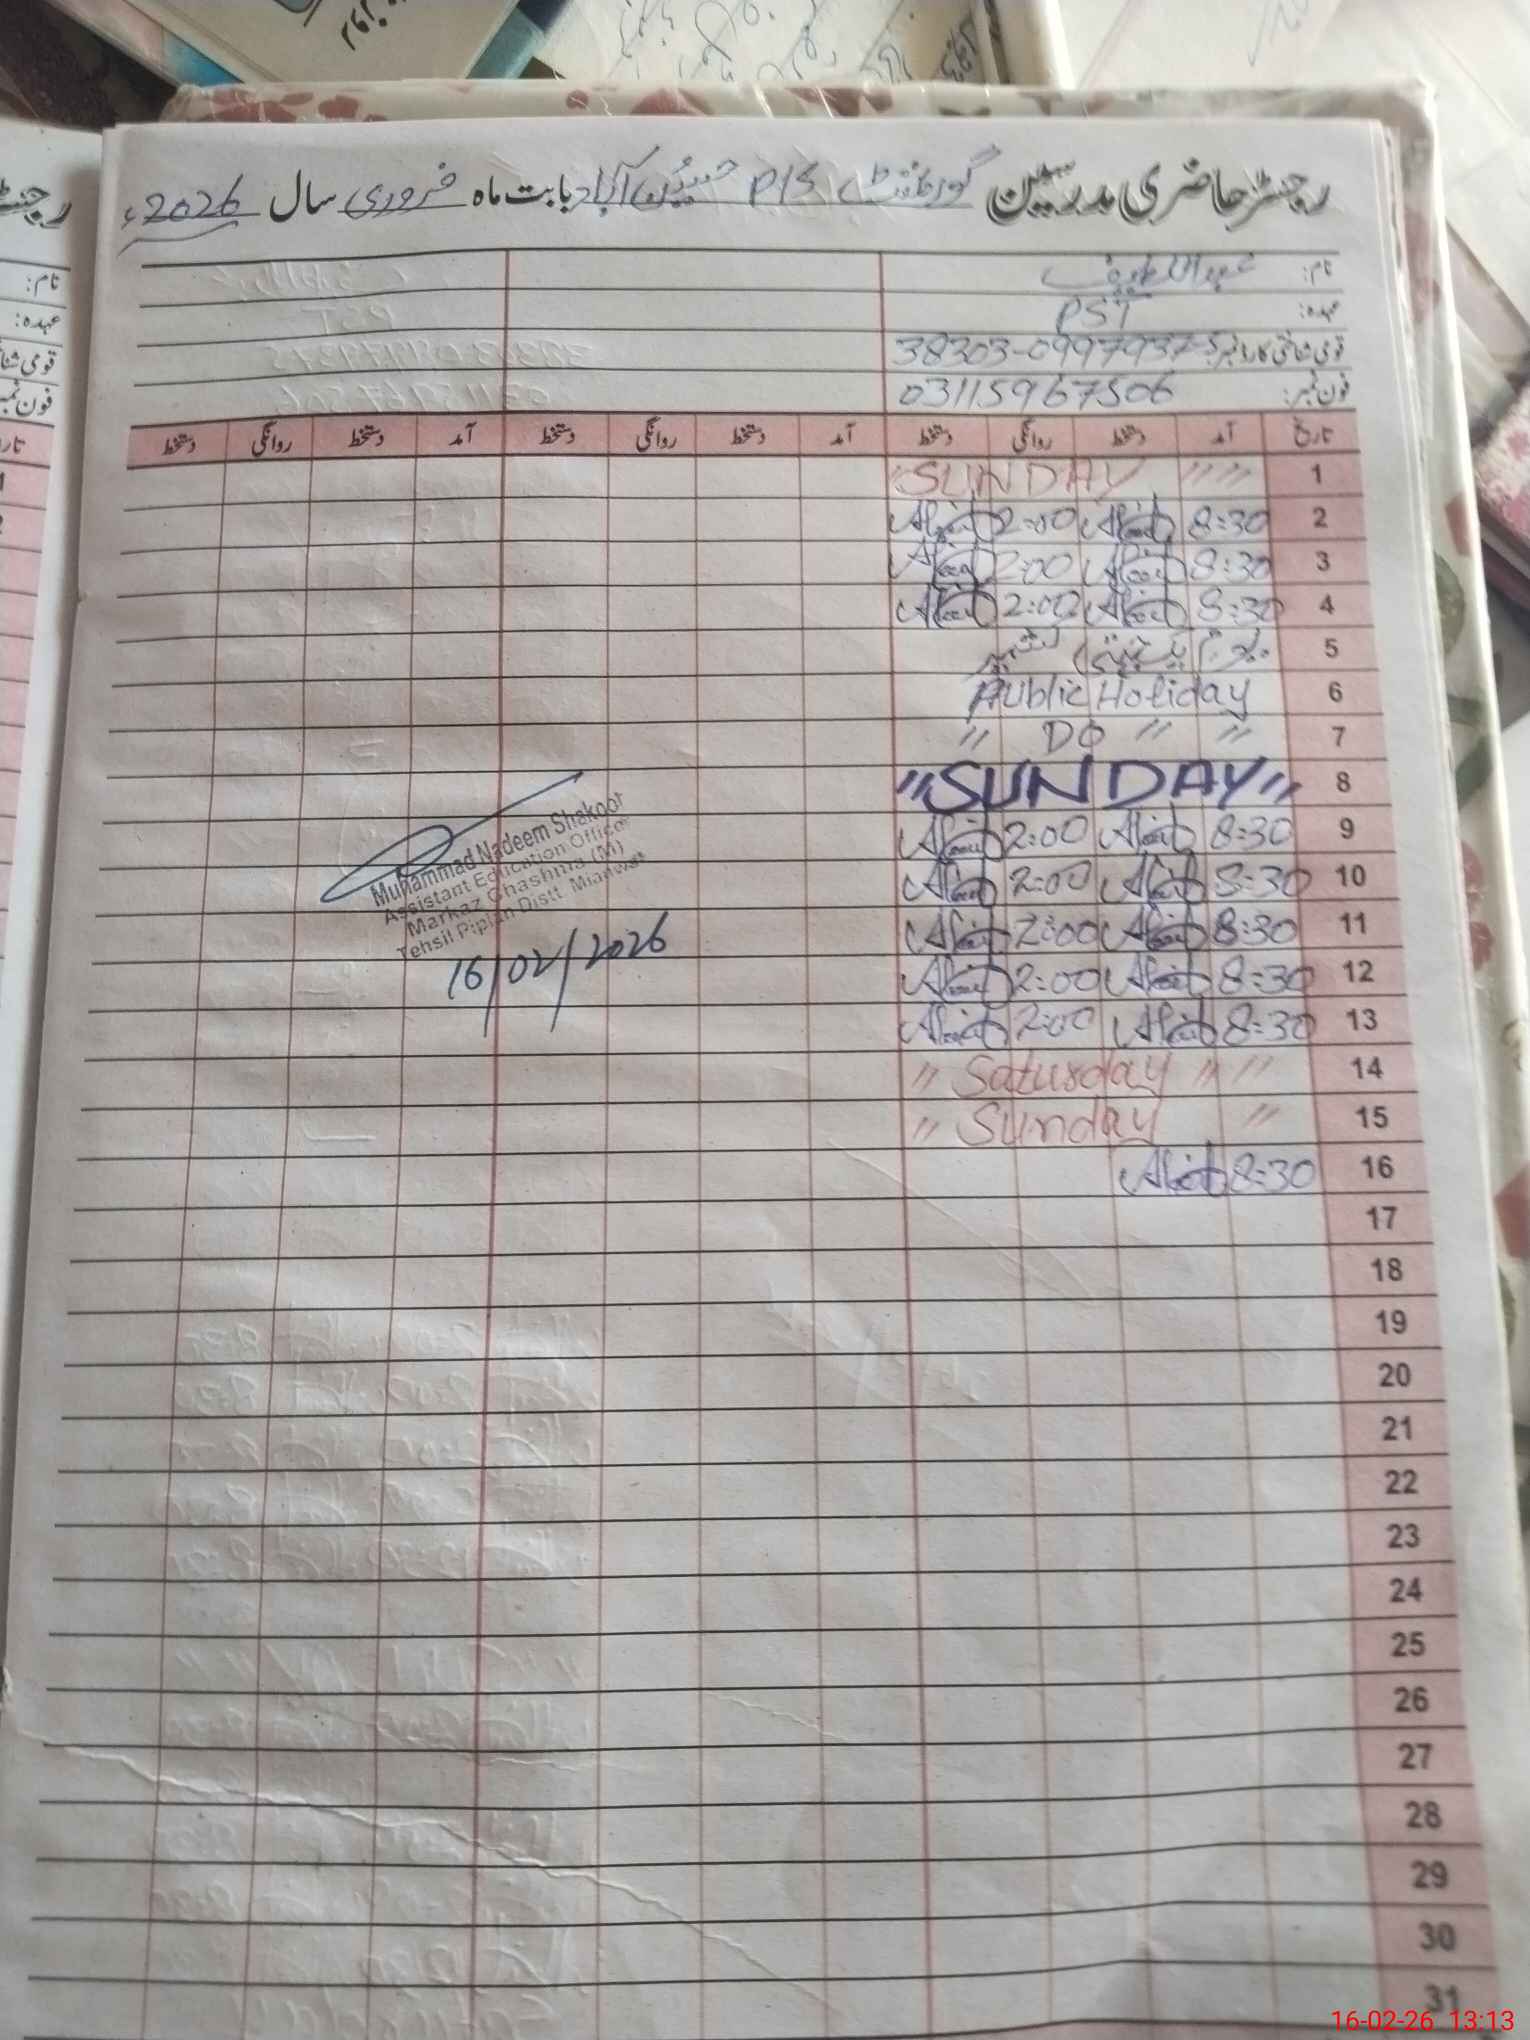 رجسٹر حاضری مدرسین گورنمنٹ P/S حسین آباد بابت ماہ فروری سال 2026ء
نام: عبداللطیف
عہدہ: PST
قومی شناختی کارڈ نمبر: 38303-0997937-5
فون نمبر: 03115967506
تاریخ آمد دستخط روانگی دستخط آمد دستخط روانگی دستخط آمد دستخط روانگی دستخط
1 " SUNDAY " "
2 8:30 2:00
3 8:30 2:00
4 8:30 2:00
5 یوم یکجہتی کشمیر
6 Public Holiday
7 " DO " "
8 "SUNDAY"
9 8:30 2:00
10 8:30 2:00
11 8:30 2:00
12 8:30 2:00
13 8:30 2:00
14 " Saturday " "
15 " Sunday "
16 8:30
17
18
19
20
21
22
23
24
25
26
27
28
29
30
31
Muhammad Nadeem Shakoor
Assistant Education Officer
Markaz Ghashnra (M)
Tehsil Piplan Distt. Mianwali
16/02/2026
رجسٹر
نام:
عہدہ:
قومی شنا
فون نمبر
16-02-26 13:13